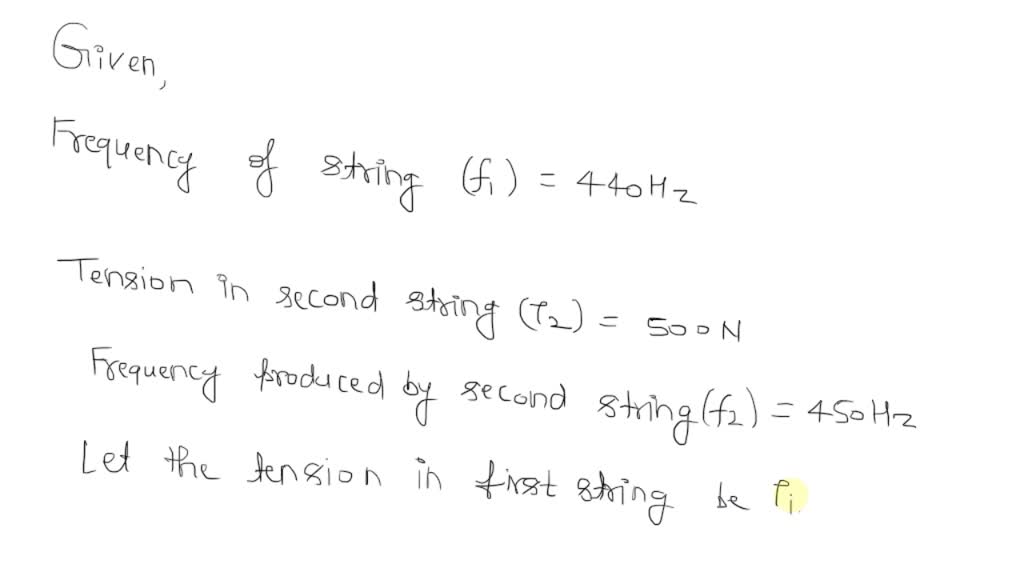 Given,
Frequency of string (f₁) = 440Hz
Tension in second string (T₂) = 500N
Frequency produced by second string (f₂) = 450Hz
Let the tension in first string be T₁